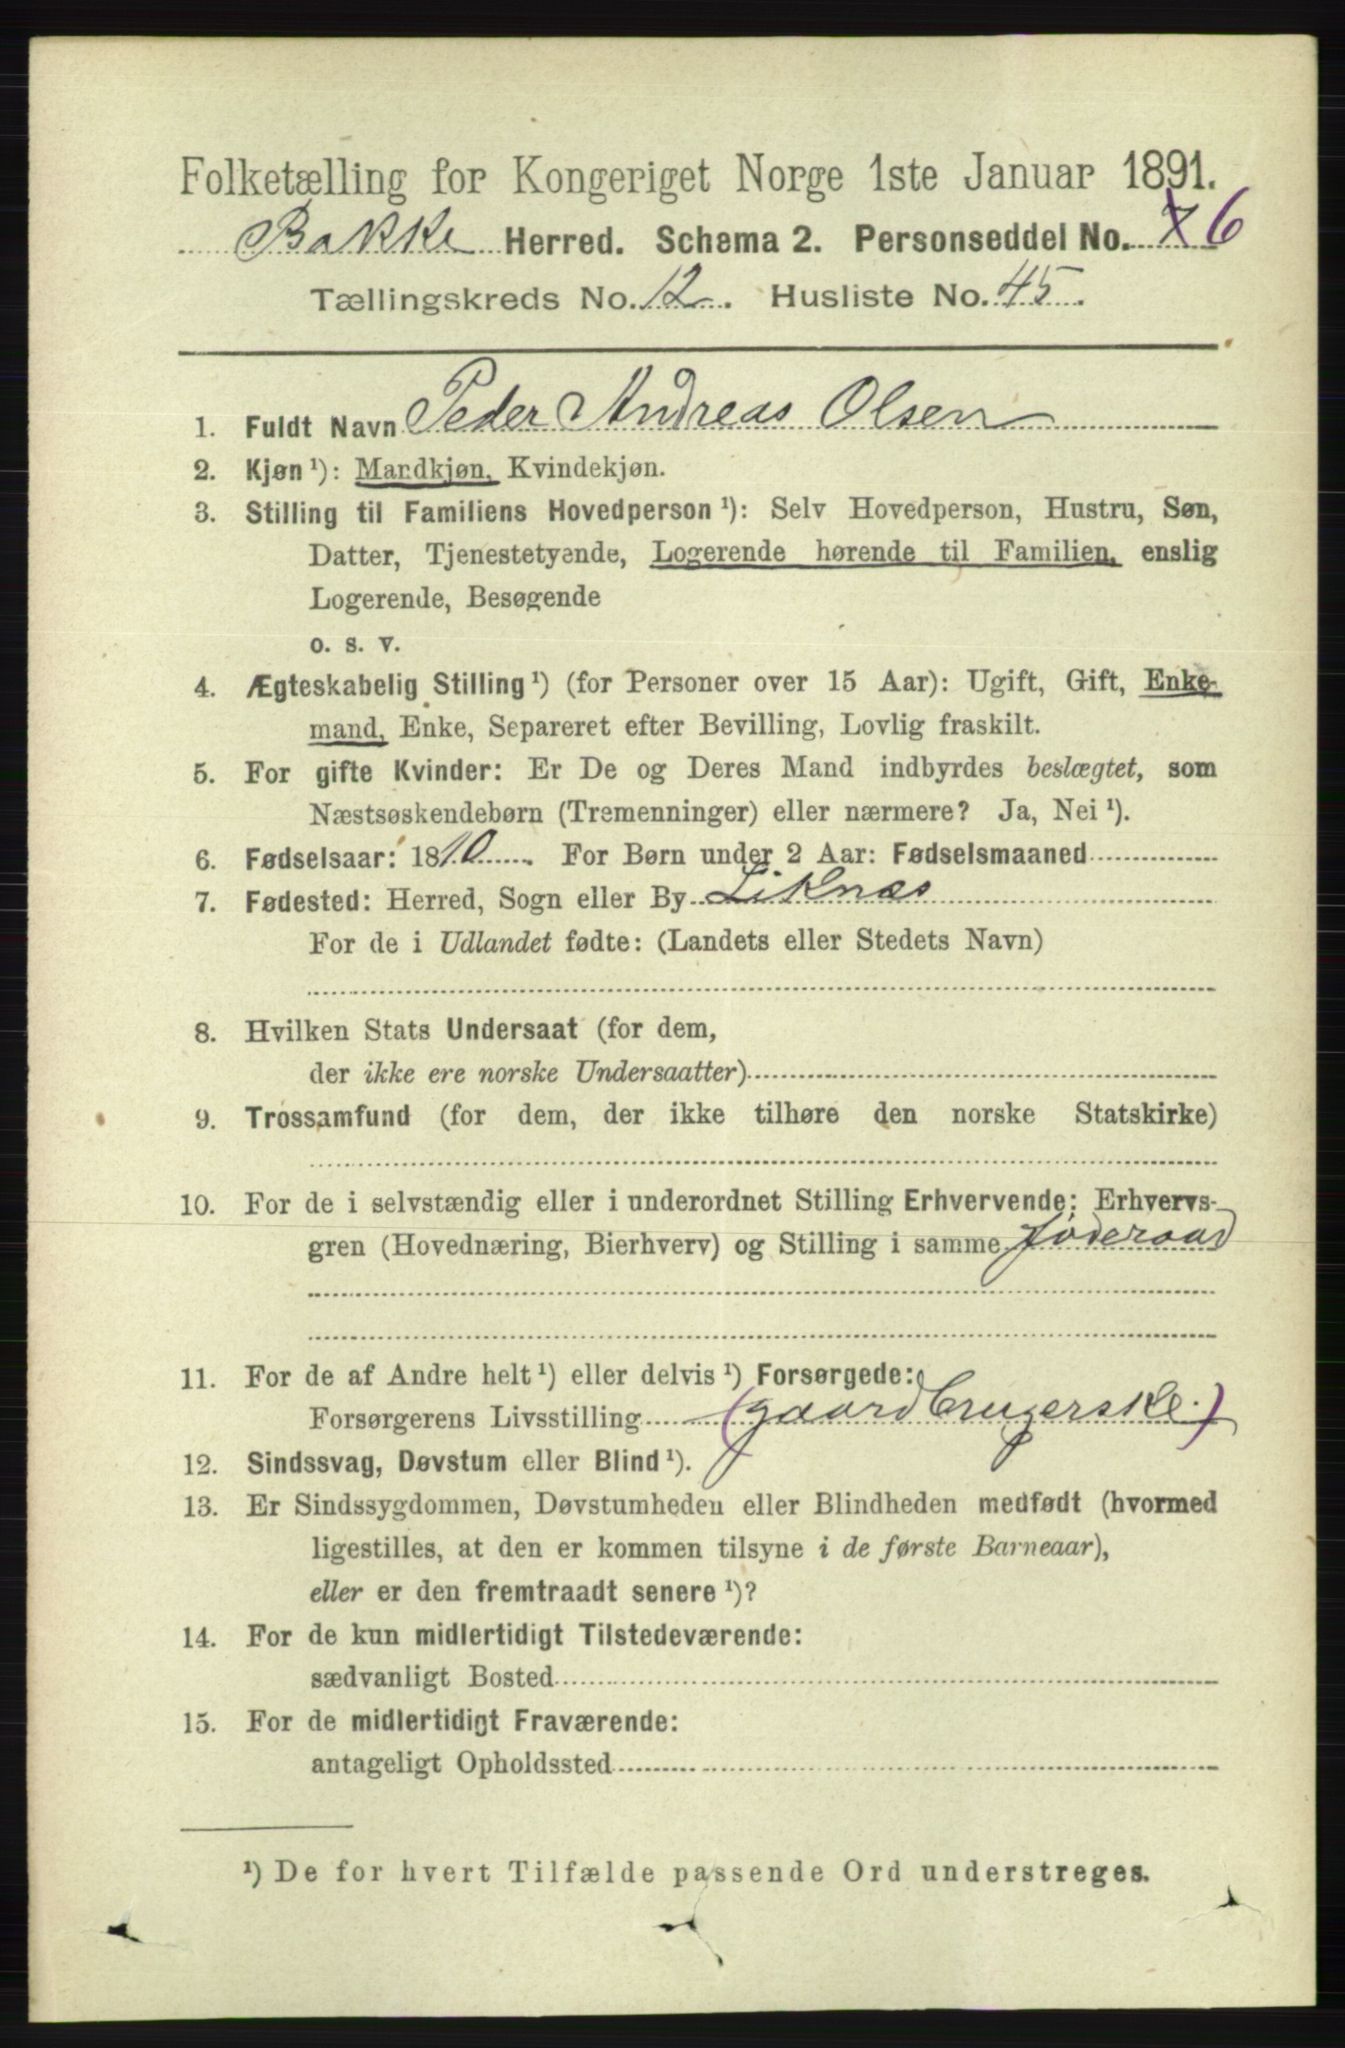 Folketælling for Kongeriget Norge 1ste Januar 1891.
Bakke Herred. Schema 2. Personseddel No. 7 6
Tællingskreds No. 12. Husliste No. 45.
1. Fuldt Navn Peder Andreas Olsen
2. Kjøn ¹): Mandkjøn, Kvindekjøn.
3. Stilling til Familiens Hovedperson ¹): Selv Hovedperson, Hustru, Søn,
Datter, Tjenestetyende, Logerende hørende til Familien, enslig
Logerende, Besøgende
o. s. v.
4. Ægteskabelig Stilling ¹) (for Personer over 15 Aar): Ugift, Gift, Enke-
mand, Enke, Separeret efter Bevilling, Lovlig fraskilt.
5. For gifte Kvinder: Er De og Deres Mand indbyrdes beslægtet, som
Næstsøskendebørn (Tremenninger) eller nærmere? Ja, Nei ¹).
6. Fødselsaar: 1810. For Børn under 2 Aar: Fødselsmaaned
7. Fødested: Herred, Sogn eller By Liknæs
For de i Udlandet fødte: (Landets eller Stedets Navn)
8. Hvilken Stats Undersaat (for dem,
der ikke ere norske Undersaatter)
9. Trossamfund (for dem, der ikke tilhøre den norske Statskirke)
10. For de i selvstændig eller i underordnet Stilling Erhvervende: Erhvervs-
gren (Hovednæring, Bierhverv) og Stilling i samme Føderaad
11. For de af Andre helt ¹) eller delvis ¹) Forsørgede:
Forsørgerens Livsstilling (gaardbrugerske.)
12. Sindssvag, Døvstum eller Blind ¹).
13. Er Sindssygdommen, Døvstumheden eller Blindheden medfødt (hvormed
ligestilles, at den er kommen tilsyne i de første Barneaar),
eller er den fremtraadt senere ¹)?
14. For de kun midlertidigt Tilstedeværende:
sædvanligt Bosted
15. For de midlertidigt Fraværende:
antageligt Opholdssted
¹) De for hvert Tilfælde passende Ord understreges.